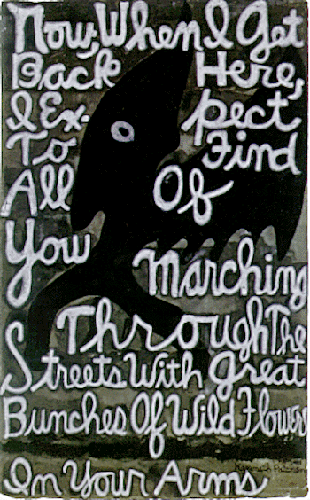 Now, When I Get
Back Here,
I Ex- pect
To Find
All Of
You Marching
Through The
Streets With great
Bunches Of Wild Flowers
In Your Arms
Kenneth Patchen